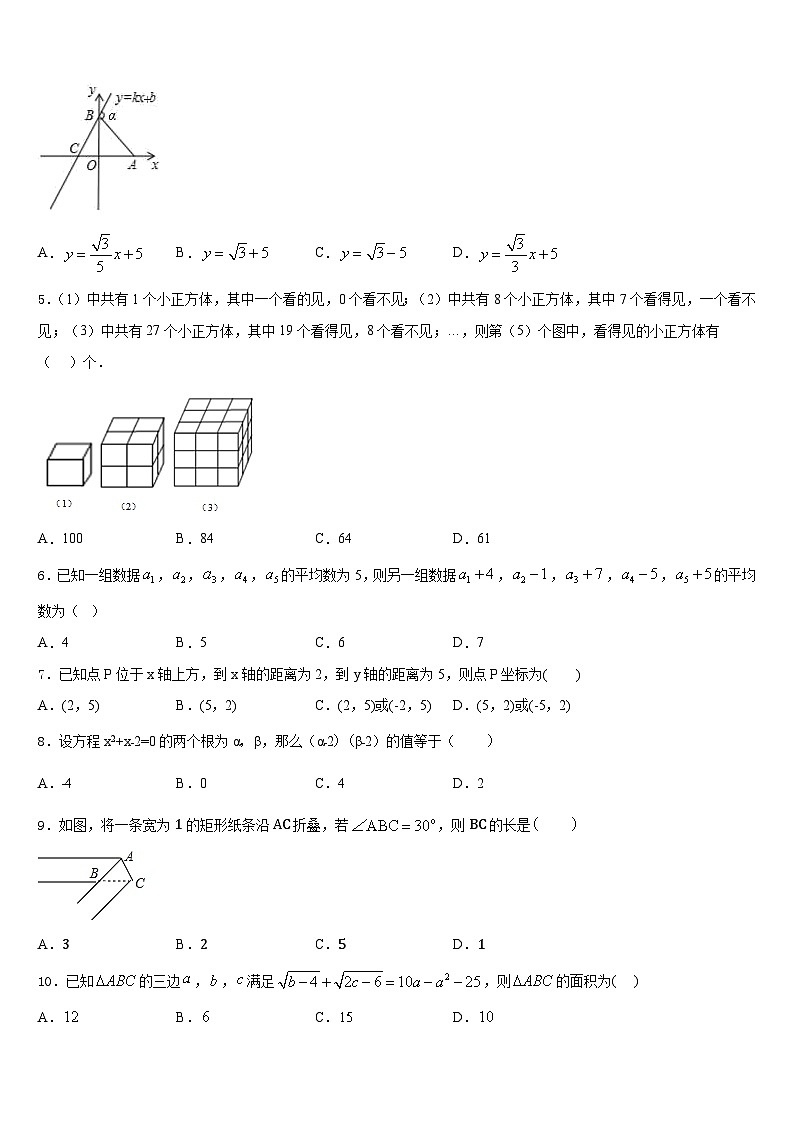 y
y=kx+b
B α
C
O A x
A. y=√3/5 x+5 B. y=√3+5 C. y=√3−5 D. y=√3/3 x+5
5.(1)中共有1个小正方体,其中一个看的见,0个看不见;(2)中共有8个小正方体,其中7个看得见,一个看不
见;(3)中共有27个小正方体,其中19个看得见,8个看不见;…,则第(5)个图中,看得见的小正方体有
( )个.
(1) (2) (3)
A.100 B.84 C.64 D.61
6.已知一组数据a₁,a₂,a₃,a₄,a₅的平均数为5,则另一组数据a₁+4,a₂−1,a₃+7,a₄−5,a₅+5的平均
数为( )
A.4 B.5 C.6 D.7
7.已知点P位于x轴上方,到x轴的距离为2,到y轴的距离为5,则点P坐标为( )
A.(2,5) B.(5,2) C.(2,5)或(-2,5) D.(5,2)或(-5,2)
8.设方程x²+x-2=0的两个根为α,β,那么(α-2)(β-2)的值等于( )
A.-4 B.0 C.4 D.2
9.如图,将一条宽为1的矩形纸条沿AC折叠,若∠ABC=30°,则BC的长是( )
A
B C
A.3 B.2 C.5 D.1
10.已知ΔABC的三边a,b,c满足√(b−4)+√(2c−6)=10a−a²−25,则ΔABC的面积为( )
A.12 B.6 C.15 D.10